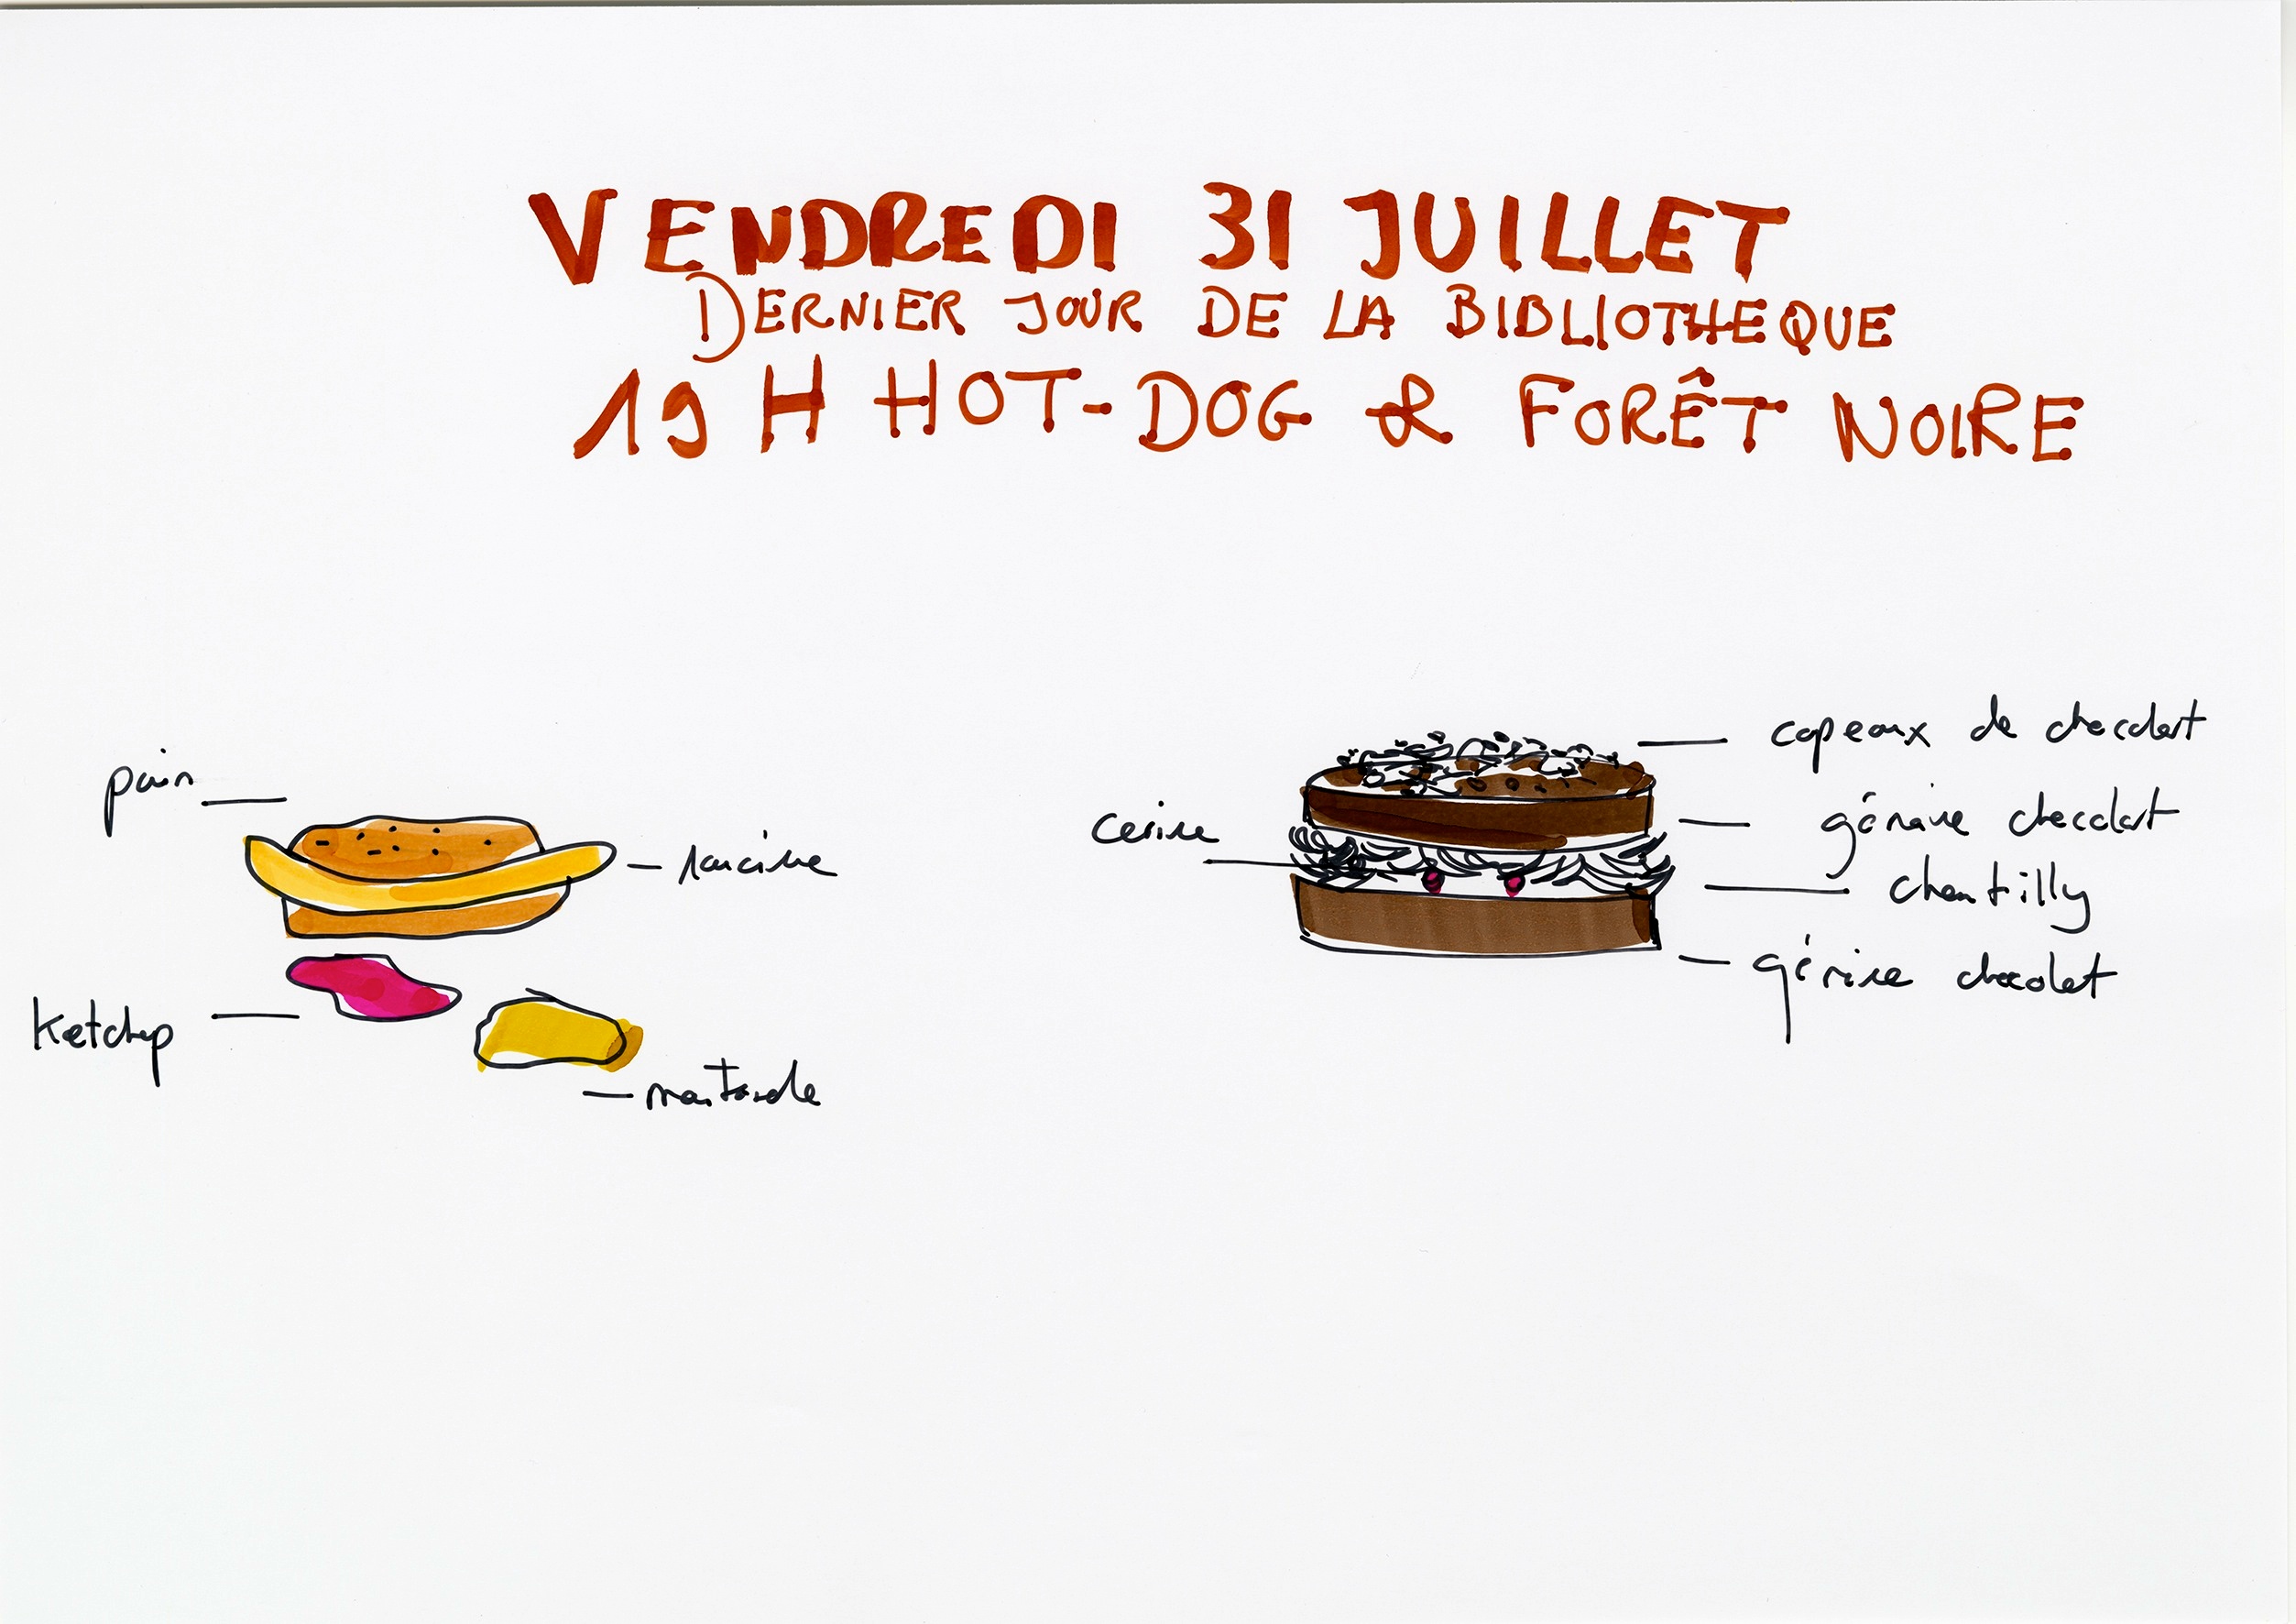 VENDREDI 31 JUILLET
DERNIER JOUR DE LA BIBLIOTHEQUE
19 H HOT-DOG & FORÊT NOIRE
pain
saucisse
Ketchup
moutarde
cerise
copeaux de chocolat
génoise chocolat
chantilly
génoise chocolat